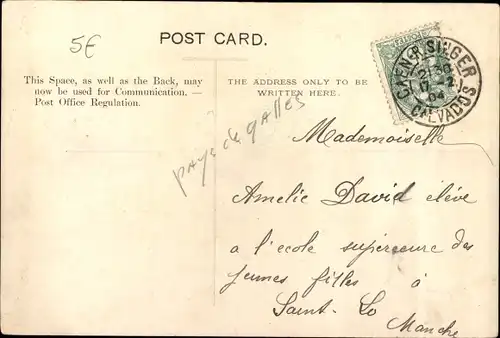 5€
POST CARD.
This Space, as well as the Back, may
now be used for Communication. —
Post Office Regulation.
THE ADDRESS ONLY TO BE
WRITTEN HERE.
CAEN R. SINGER
17
04
CALVADOS
pays de galles
Mademoiselle
Amelie David élève
a l'école supérieure des
jeunes filles à
Saint-Lo
Manche